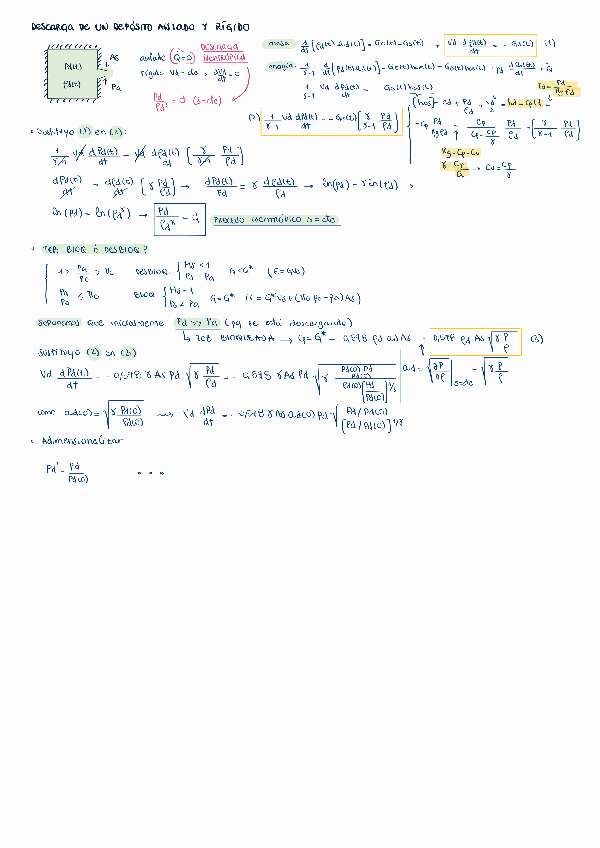 DESCARGA DE UN DEPÓSITO AISLADO Y RÍGIDO
Pd(t)
ρd(t)
As
Pa
aislado (Q̇=0)
DESCARGA ISENTRÓPICA
rígido Vd = cte → dVd/dt = 0
Pd/ρd^γ = cte (s=cte)
masa: d/dt [ρd(t)·Vd(t)] = Ge(t) - Gs(t) → Vd dρd(t)/dt = - Gs(t) (1)
energía: 1/γ-1 · d/dt [Pd(t)Vd(t)] = Ge(t)hoe(t) - Gs(t)hos(t) - Pd dVd(t)/dt + Q̇
1/γ-1 Vd dPd(t)/dt = - Gs(t)hos(t)
(2) 1/γ-1 Vd dPd(t)/dt = - Gs(t) [γ/γ-1 Pd/ρd]
Rg = Cp - Cv
γ = Cp/Cv → Cv = Cp/γ
• Sustituyo (1) en (2):
1/γ-1 Vd dPd(t)/dt = Vd dρd(t)/dt [γ/γ-1 Pd/ρd]
dPd(t)/dt = dρd(t)/dt [γ Pd/ρd] → dPd(t)/Pd = γ dρd(t)/ρd → ln(Pd) = γ ln(ρd) →
ln(Pd) = ln(ρd^γ) → Pd/ρd^γ = cte PROCESO ISENTRÓPICO s = cte
• TCB: BLOQ ó DESBLOQ?
1 > Pa/Po > πc DESBLOQ { Ms < 1 Ps = Pa G < G* (E = GVs)
Pa/Po ≤ πc BLOQ { Ms = 1 Ps ≠ Pa G = G* E = G*Vs + (πc Po - Pa)As
Suponemos que inicialmente Pd >> Pa (pq se está descargando)
↳ TCB BLOQUEADA → G = G* = 0,578 ρd ad As = 0,578 ρd As √γ P/ρ (3)
Sustituyo (2) en (3)
Vd dPd(t)/dt = - 0,578 γ As Pd √γ Pd/ρd = - 0,578 γ As Pd √γ
ad = √∂P/∂ρ |s=cte = √γ P/ρ
como ad(0) = √γ Pd(0)/ρd(0) → Vd dPd/dt = - 0,578 γ As ad(0) Pd √Pd/Pd(0)/[Pd/Pd(0)]^1/γ
• Adimensionalizar
Pd' = Pd/Pd(0) • • •